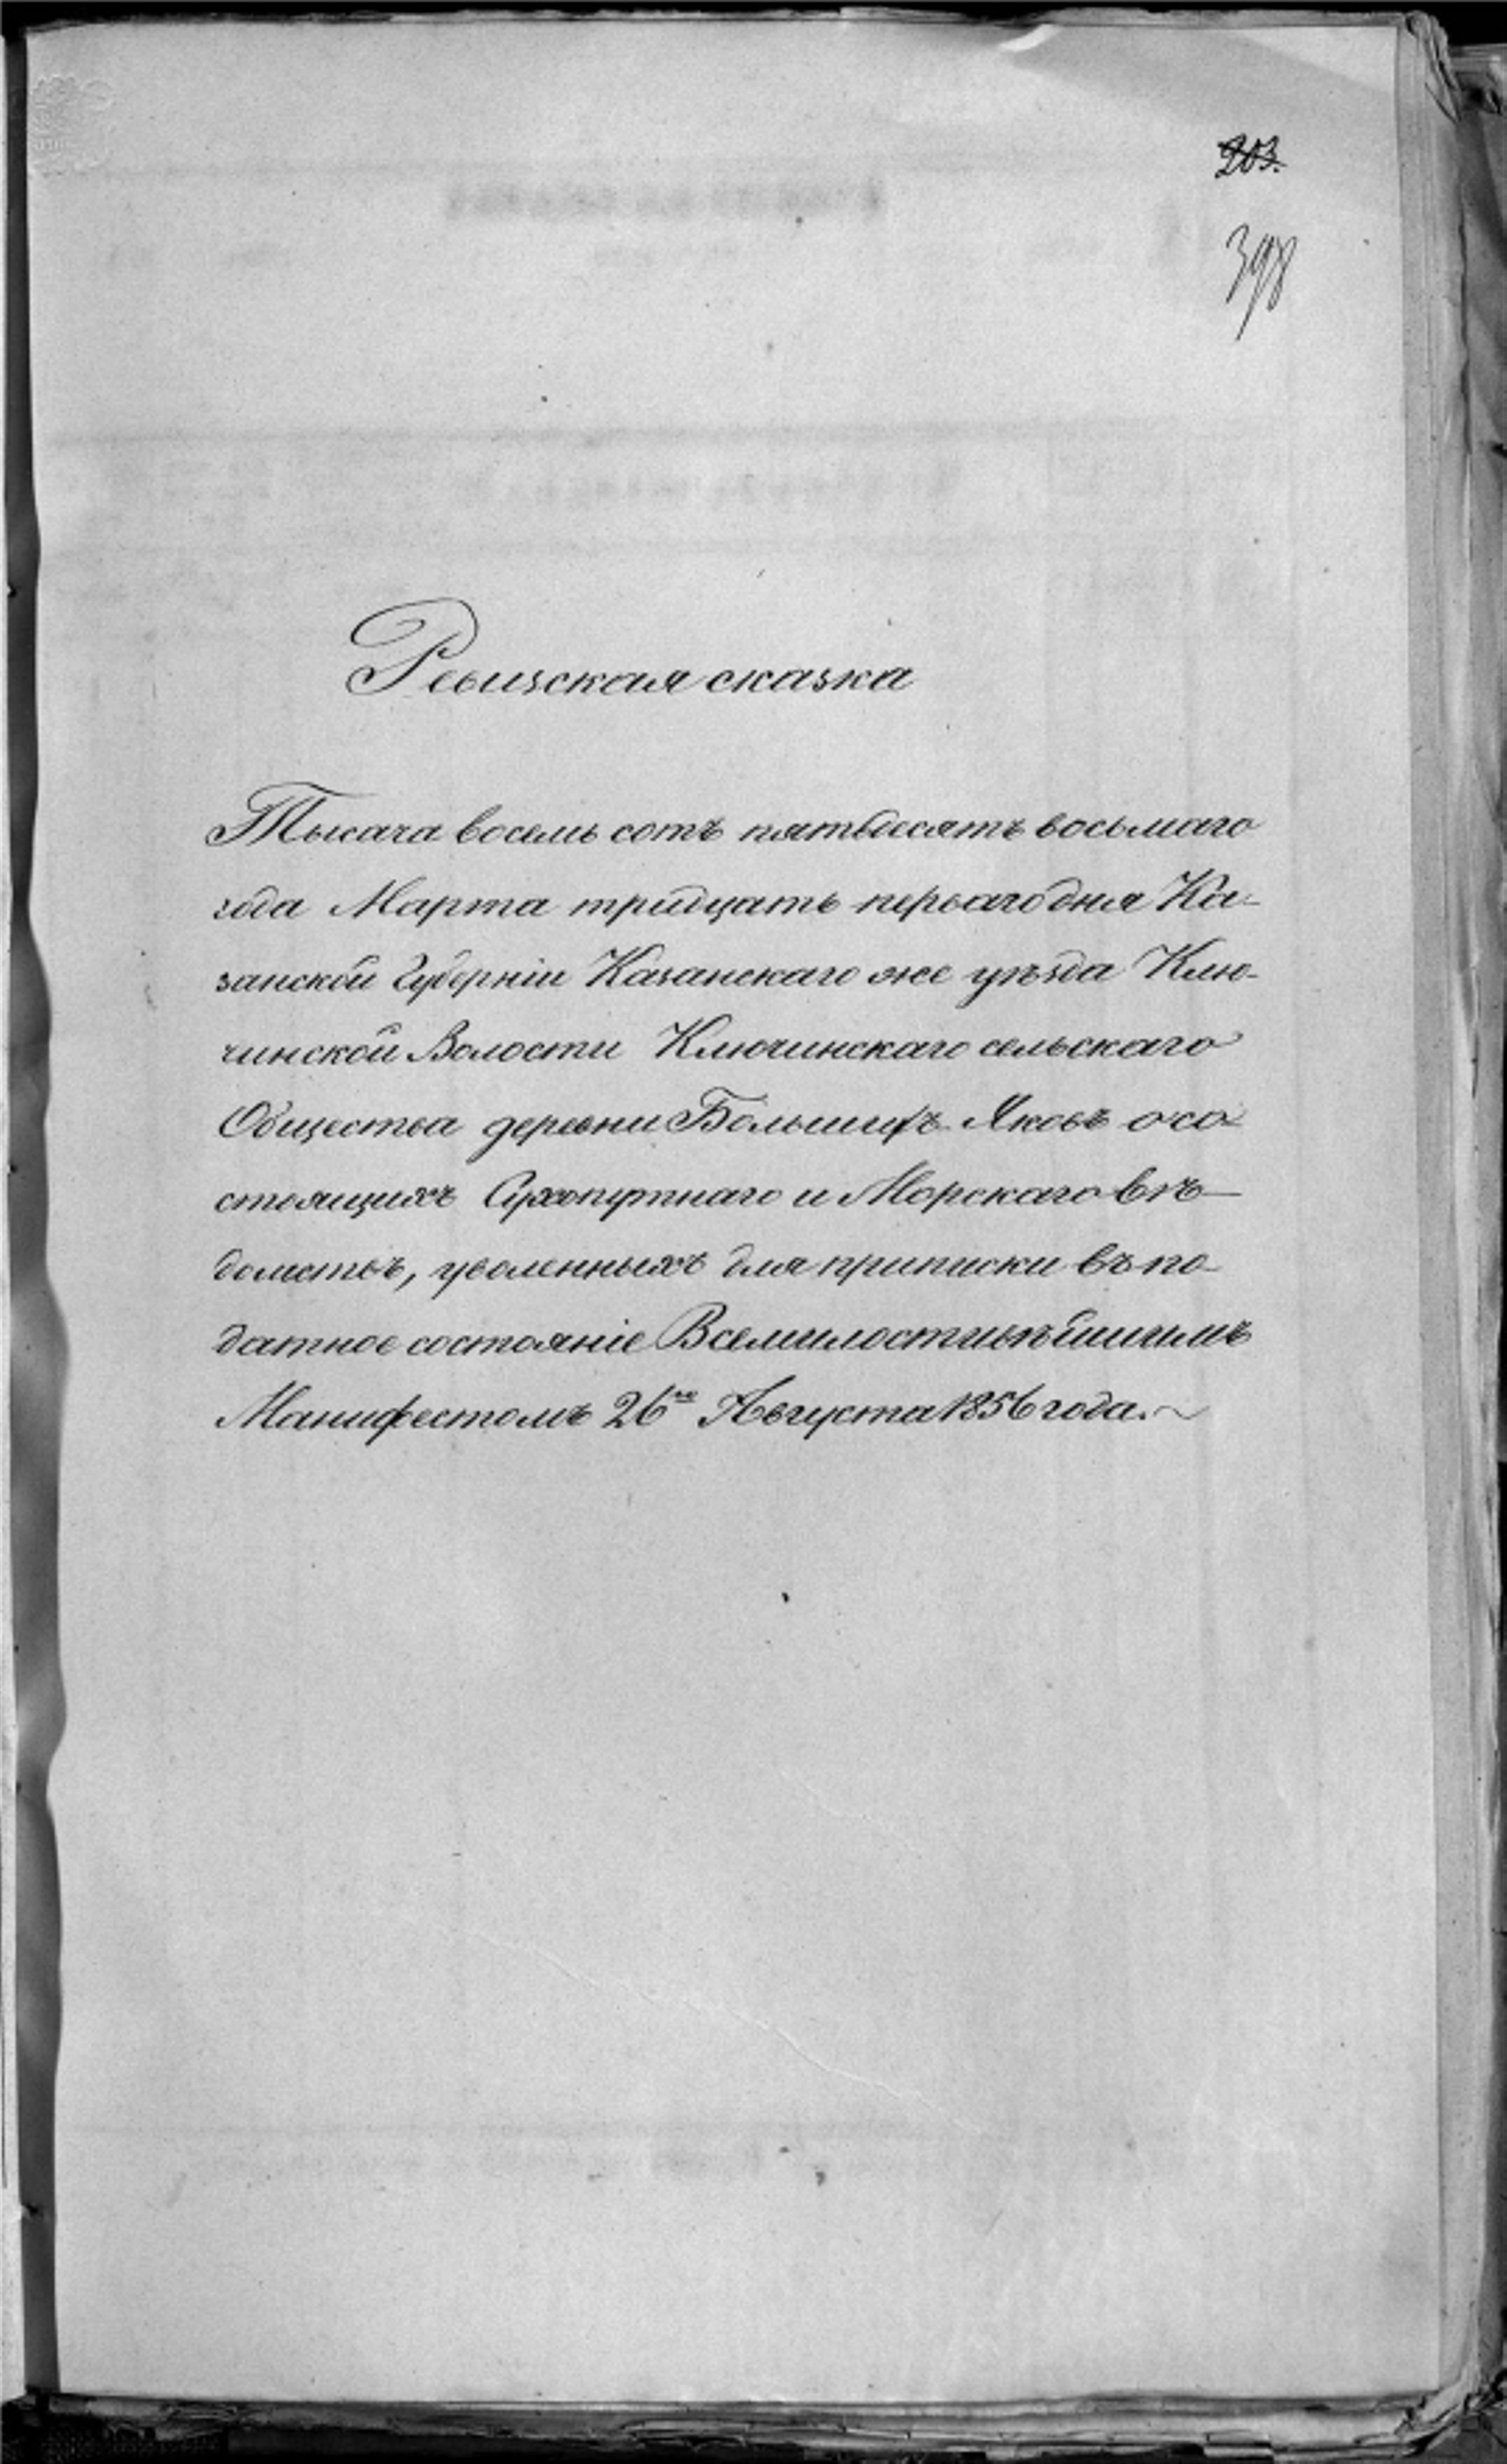 203.
398
Ревизская сказка
Тысяча восемь сотъ пятьдесятъ восьмаго
года Марта тридцать перваго дня Ка-
занской Губерніи Казанскаго же уѣзда Клю-
чинской Волости Ключинскаго сельскаго
Общества деревни Большихъ Яковъ о со
стоящихъ Сухопутнаго и Морскаго вѣ-
домствъ, уволенныхъ для приписки въ по-
датное состояніе Всемилостивѣйшимъ
Манифестомъ 26го Августа 1856 года.